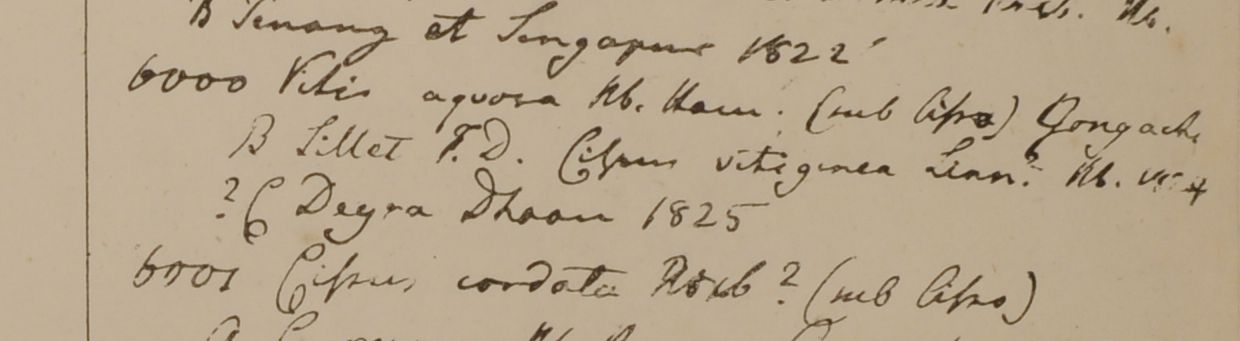 Hb.
B Penang et Singapur 1822
6000 Vitis aquosa Hb. Ham. (sub Cisso) Gongachi
B Sillet F.D. Cissus vitiginea Linn? Hb.
? C Deyra Dhoon 1825
6001 Cissus cordata Roxb? (sub Cisso)